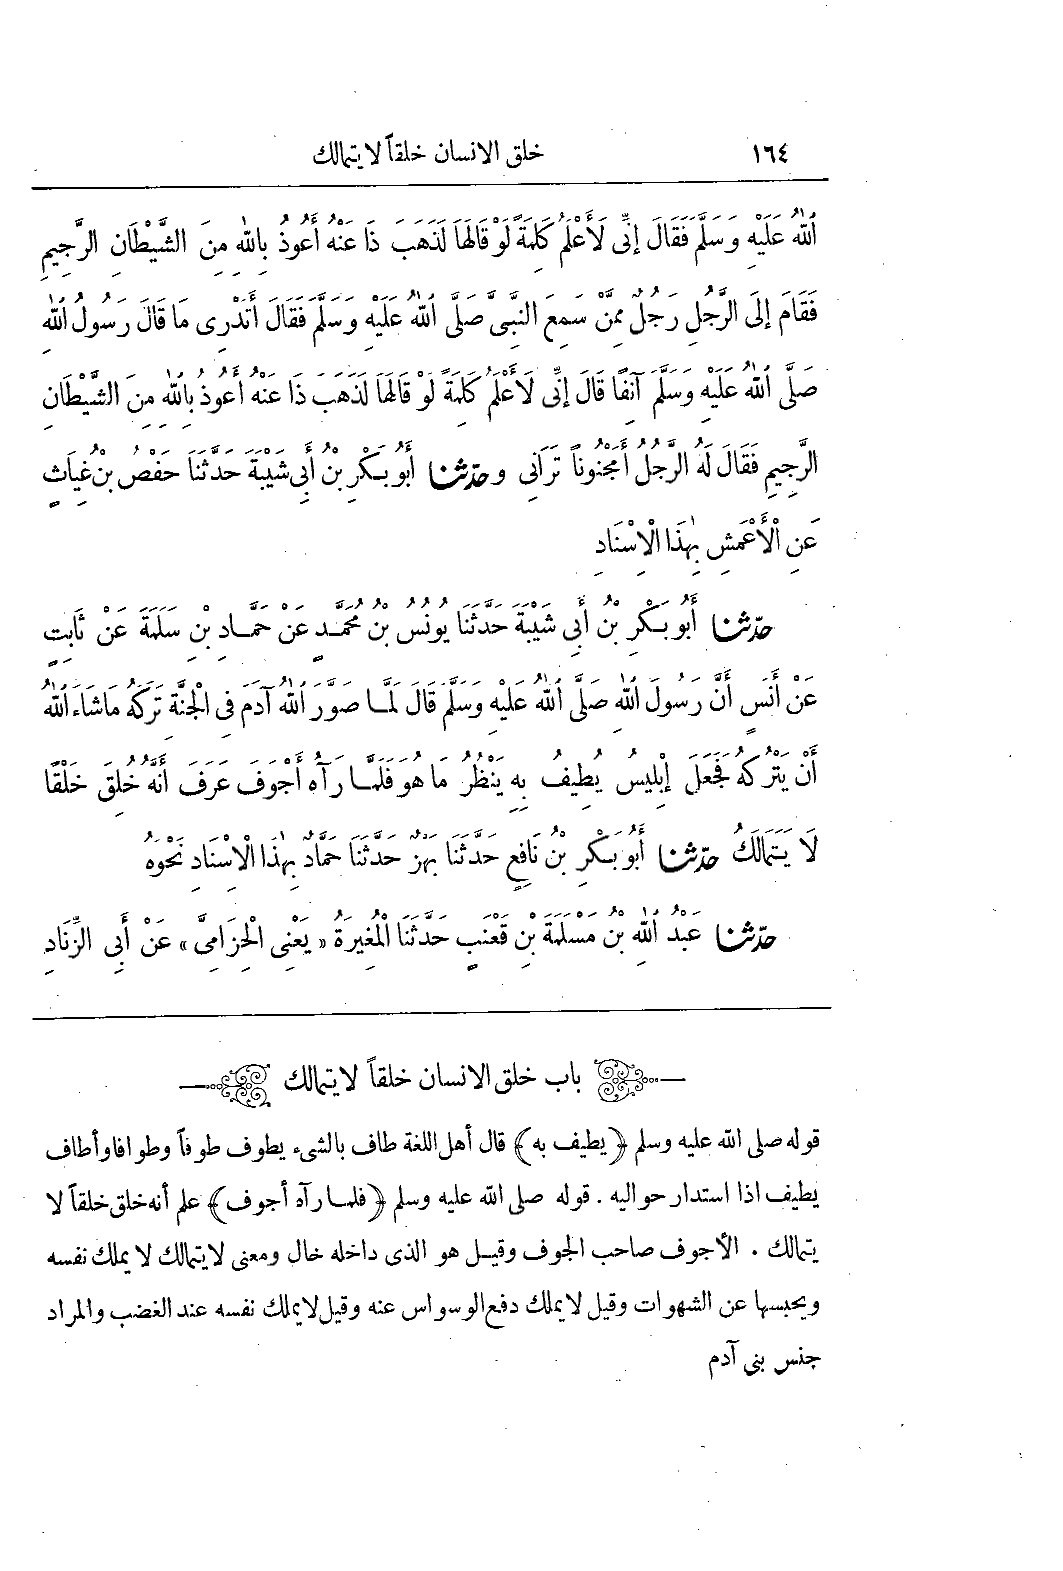 ١٦٤ خلق الانسان خلقاً لا يتمالك
اللهُ عَلَيْهِ وَسَلَّمَ فَقَالَ إِنِّي لَأَعْلَمُ كَلِمَةً لَوْ قَالَهَا لَذَهَبَ ذَا عَنْهُ أَعُوذُ بِاللهِ مِنَ الشَّيْطَانِ الرَّجِيمِ
فَقَامَ إِلَى الرَّجُلِ رَجُلٌ مِمَّنْ سَمِعَ النَّبِىَّ صَلَّى اللهُ عَلَيْهِ وَسَلَّمَ فَقَالَ أَتَدْرِى مَا قَالَ رَسُولُ اللهِ
صَلَّى اللهُ عَلَيْهِ وَسَلَّمَ آنِفًا قَالَ إِنِّي لَأَعْلَمُ كَلِمَةً لَوْ قَالَهَا لَذَهَبَ ذَا عَنْهُ أَعُوذُ بِاللهِ مِنَ الشَّيْطَانِ
الرَّجِيمِ فَقَالَ لَهُ الرَّجُلُ أَمَجْنُونًا تَرَانِى وحَدَّثَنَا أَبُو بَكْرِ بْنُ أَبِى شَيْبَةَ حَدَّثَنَا حَفْصُ بْنُ غِيَاثٍ
عَنِ الْأَعْمَشِ بِهٰذَا الْإِسْنَادِ
حدّثنا أَبُو بَكْرِ بْنُ أَبِى شَيْبَةَ حَدَّثَنَا يُونُسُ بْنُ مُحَمَّدٍ عَنْ حَمَّادِ بْنِ سَلَمَةَ عَنْ ثَابِتٍ
عَنْ أَنَسٍ أَنَّ رَسُولَ اللهِ صَلَّى اللهُ عَلَيْهِ وَسَلَّمَ قَالَ لَمَّا صَوَّرَ اللهُ آدَمَ فِى الْجَنَّةِ تَرَكَهُ مَا شَاءَ اللهُ
أَنْ يَتْرُكَهُ فَجَعَلَ إِبْلِيسُ يُطِيفُ بِهِ يَنْظُرُ مَا هُوَ فَلَمَّا رَآهُ أَجْوَفَ عَرَفَ أَنَّهُ خُلِقَ خَلْقًا
لَا يَتَمَالَكُ حدّثنا أَبُو بَكْرِ بْنُ نَافِعٍ حَدَّثَنَا بَهْزٌ حَدَّثَنَا حَمَّادٌ بِهٰذَا الْإِسْنَادِ نَحْوَهُ
حدّثنا عَبْدُ اللهِ بْنُ مَسْلَمَةَ بْنِ قَعْنَبٍ حَدَّثَنَا الْمُغِيرَةُ «يَعْنِى الْحِزَامِىَّ» عَنْ أَبِى الزِّنَادِ
باب خلق الانسان خلقاً لا يتمالك
قوله صلى الله عليه وسلم ﴿يطيف به﴾ قال أهل اللغة طاف بالشىء يطوف طوفاً وطوافا وأطاف
يطيف اذا استدار حواليه . قوله صلى الله عليه وسلم ﴿فلما رآه أجوف﴾ علم أنه خلق خلقاً لا
يتمالك . الأجوف صاحب الجوف وقيل هو الذى داخله خال ومعنى لا يتمالك لا يملك نفسه
ويحبسها عن الشهوات وقيل لا يملك دفع الوسواس عنه وقيل لا يملك نفسه عند الغضب والمراد
جنس بنى آدم